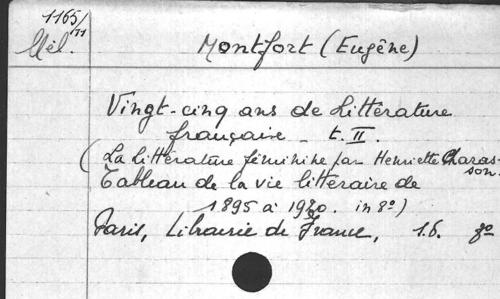 1165/II
Mél.
Montfort (Eugène)
Vingt-cinq ans de Littérature
française - t. II.
(La Littérature féminine par Henriette Charas-
son.
Tableau de la vie littéraire de
1895 à 1920. in 8º)
Paris, Librairie de France, 1.6. 8º